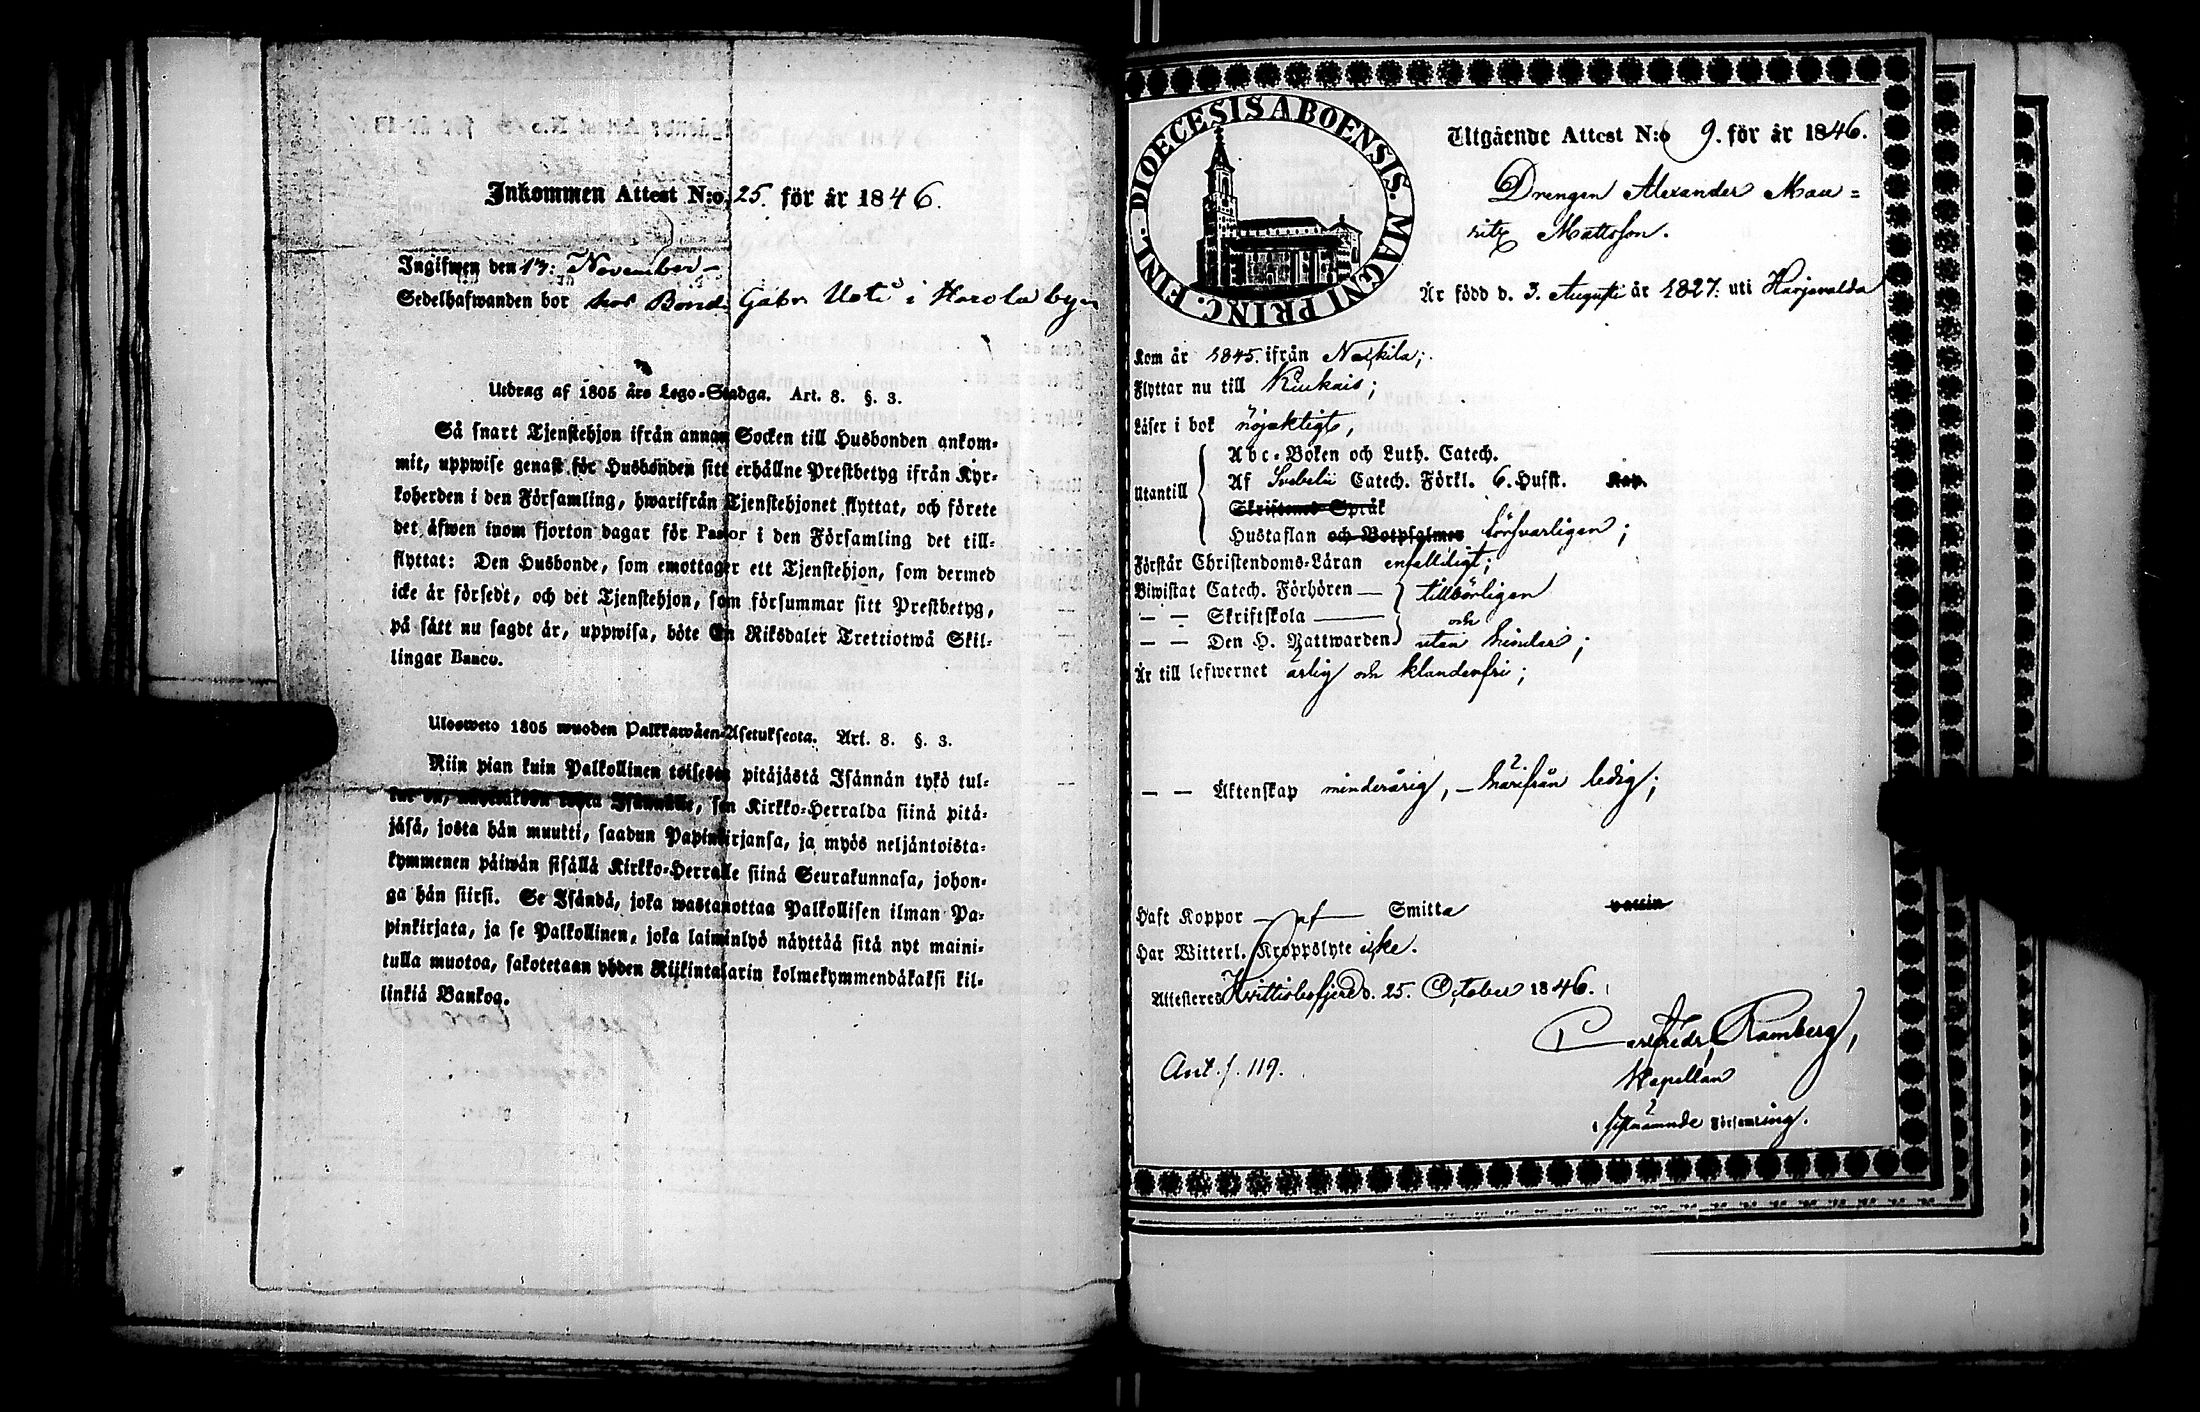 Inkommen Attest N:o 25. för år 1846.
Ingifwen den 17: November
Sedelhafwanden bor hos Bond. Gabr. Uoti i Harola by
Utdrag af 1805 års Lego-Stadga. Art. 8. §. 3.
Så snart Tjenstehjon ifrån annan Socken till Husbonden ankom-
mit, uppwise genast för Husbonden sitt erhållne Prestbetyg ifrån Kyr-
koherden i den Församling, hwarifrån Tjenstehjonet flyttat, och förete
det äfwen inom fjorton dagar för Pastor i den Församling det till-
flyttat: Den Husbonde, som emottager ett Tjenstehjon, som dermed
icke är försedt, och det Tjenstehjon, som försummar sitt Prestbetyg,
på sätt nu sagdt är, uppwisa, böte En Riksdaler Trettiotwå Skil-
lingar Banco.
Ulosweto 1805 wuoden Palkkawäen-Asetuksesta. Art. 8. §. 3.
Niin pian kuin Palkollinen toisesta pitäjästä Isännän tykö tul-
lut on, Isännälle, sen Kirkko-Herralda siinä pitä-
jäsä, josta hän muutti, saadun Papinkirjansa, ja myös neljäntoista-
kymmenen päiwän sisällä Kirkko-Herralle siinä Seurakunnasa, johon-
ga hän siirsi. Se Isändä, joka wastanottaa Palkollisen ilman Pa-
pinkirjata, ja se Palkollinen, joka laiminlyö näyttää sitä nyt maini-
tulla muotoa, sakotetaan yhden Riikintalarin kolmekymmendäkaksi kil-
linkiä Bankog.
DIOECESIS ABOENSIS. MAGNI PRINC. FINL.
Utgående Attest N:o 9. för år 1846.
Drengen Alexander Mau=
ritz Mattsson.
Är född d. 3. Augusti år 1827: uti Harjavalda
Kom år 1845. ifrån Nakkila;
Flyttar nu till Kiukais;
Läser i bok nöjaktigt,
Utantill
Abc-Boken och Luth. Catech.
Af Svebelii Catech. Förkl. 6. Hufst. Kap.
Skriftenes Språk
Hustaflan och Botpsalmer försvarligen;
Förstår Christendoms-Läran enfalldigt;
Biwistat Catech. Förhören — tillbörligen
— — Skriftskola — och
— — Den H. Nattwarden utan hinder;
Är till lefwernet ärlig och klanderfri;
— — Äktenskap minderårig, – härifrån ledig;
Haft Koppor — af — Smitta vaccin
Har Witterl. Kroppslyte icke.
Attesteres Hvittisbofjerd d. 25. October 1846.
Carl Fredr. Ramberg,
Kapellan
i sistnämnde Församling.
Ant. f. 119.